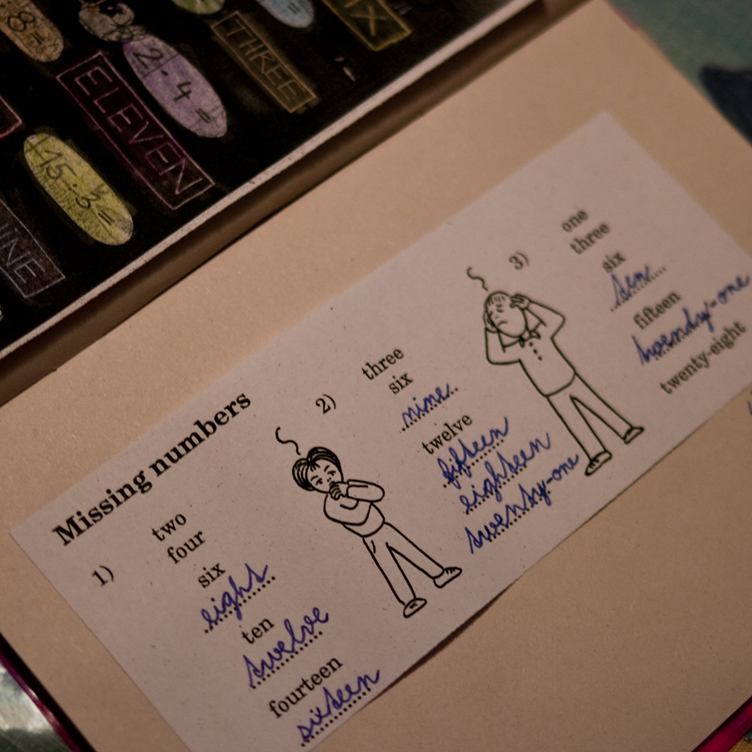 8=
2·4=
THREE
IX
ELEVEN
15:3=
NINE
Missing numbers
1)
two
four
six
eight
ten
twelve
fourteen
sixteen
2)
three
six
nine
twelve
fifteen
eighteen
twenty-one
3)
one
three
six
ten
fifteen
twenty-one
twenty-eight